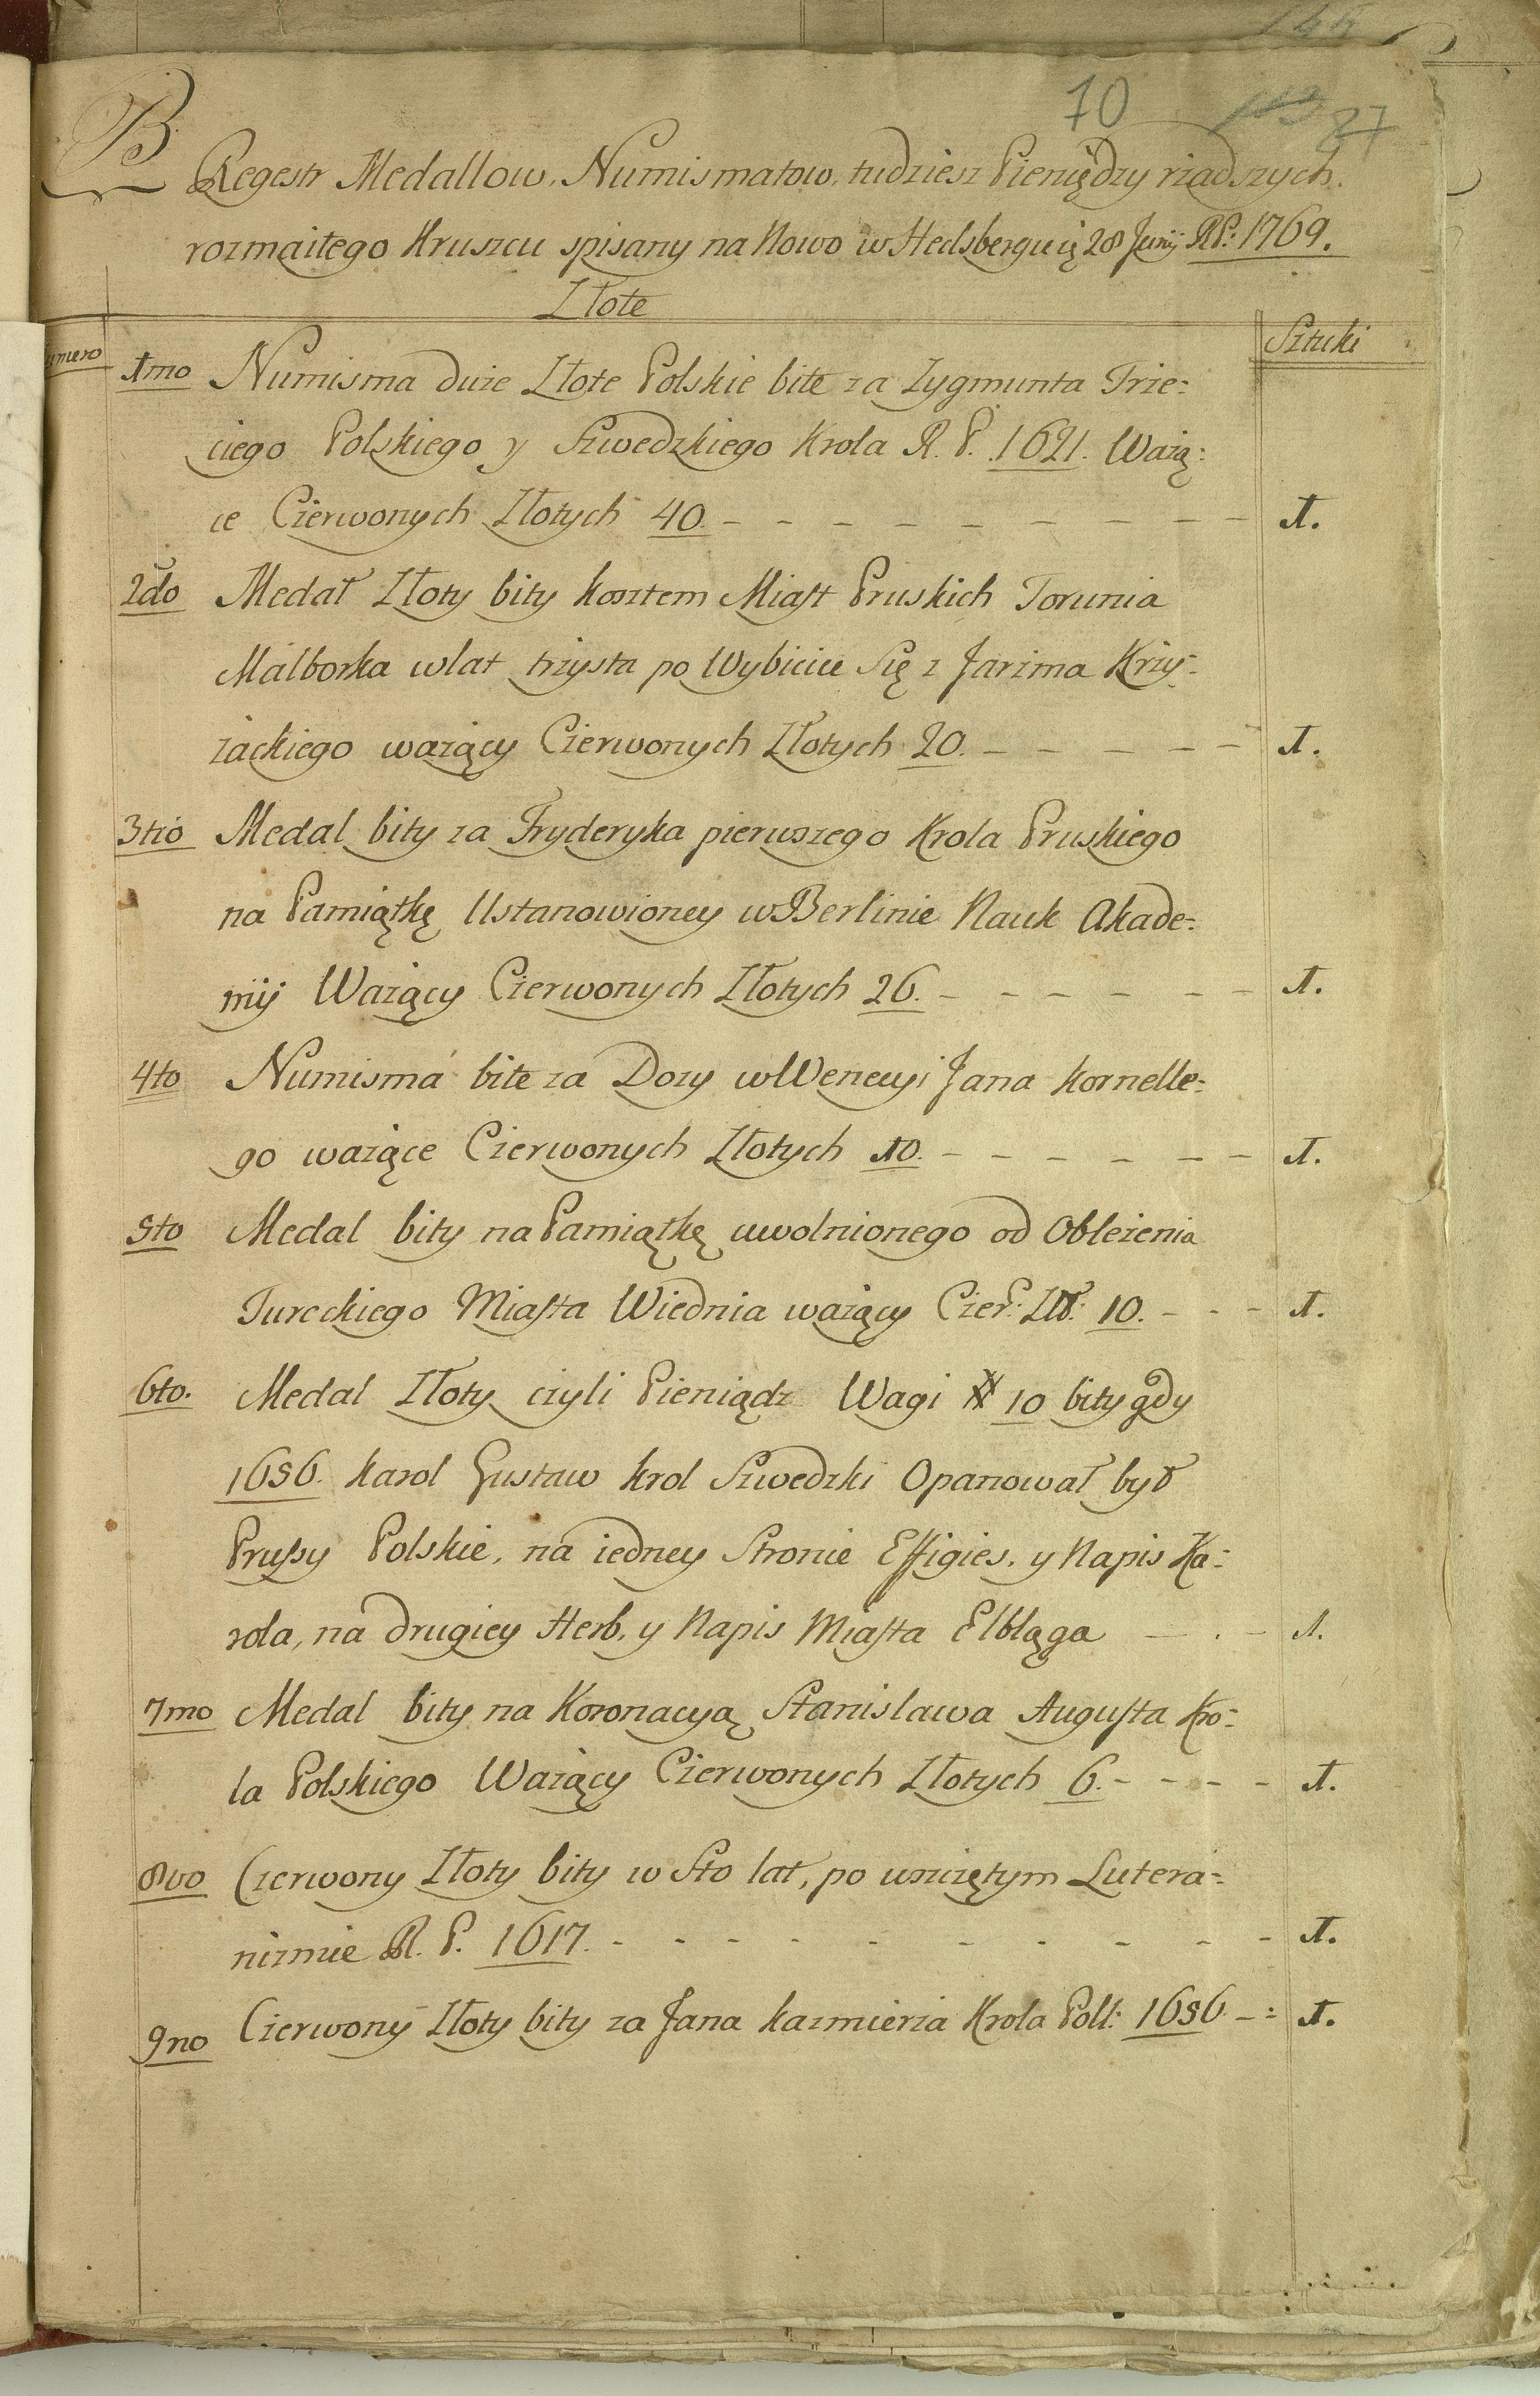 70
87
B
Regestr Medallow, Numismatow, tudziesz Pieniędzy rzadszych.
rozmaitego Kruszcu spisany na Nowo w Hedsbergu 28 Junij RP: 1769.
Złote
Sztuki
1mo Numisma duże Złote Polskie bite za Zygmunta Trze-
ciego Polskiego y Szwedzkiego Krola R. P. 1621. Ważą-
ce Czerwonych Złotych 40. 1.
2do Medał Złoty bity kosztem Miast Pruskich Torunia
Malborka w lat trzysta po Wybiciu Się z Jarzma Krzy-
żackiego ważący Czerwonych Złotych 20. 1.
3tio Medal bity za Fryderyka pierwszego Krola Pruskiego
na Pamiątkę Ustanowioney w Berlinie Nauk Akade-
mij Ważący Czerwonych Złotych 26. 1.
4to Numisma bite za Dozy w Wenecyi Jana Kornelle-
go ważące Czerwonych Złotych 10. 1.
5to Medal bity na Pamiątkę uwolnionego od Oblezenia
Tureckiego Miasta Wiednia ważący Czer: Zł: 10. 1.
6to. Medal Złoty czyli Pieniądz Wagi # 10 bity gdy
1656. Karol Gustaw Krol Szwedzki Opanował był
Prussy Polskie, na iedney Stronie Effigies, y Napis Ka-
rola, na drugiey Herb, y Napis Miasta Elbląga 1.
7mo Medal bity na Koronacyą Stanislawa Augusta Kro-
la Polskiego Ważący Czerwonych Złotych 6. 1.
8vo Czerwony Złoty bity w Sto lat, po wszczętym Lutera-
nizmie R. P. 1617. 1.
9no Czerwony Złoty bity za Jana Kazmierza Krola Poll: 1656 1.